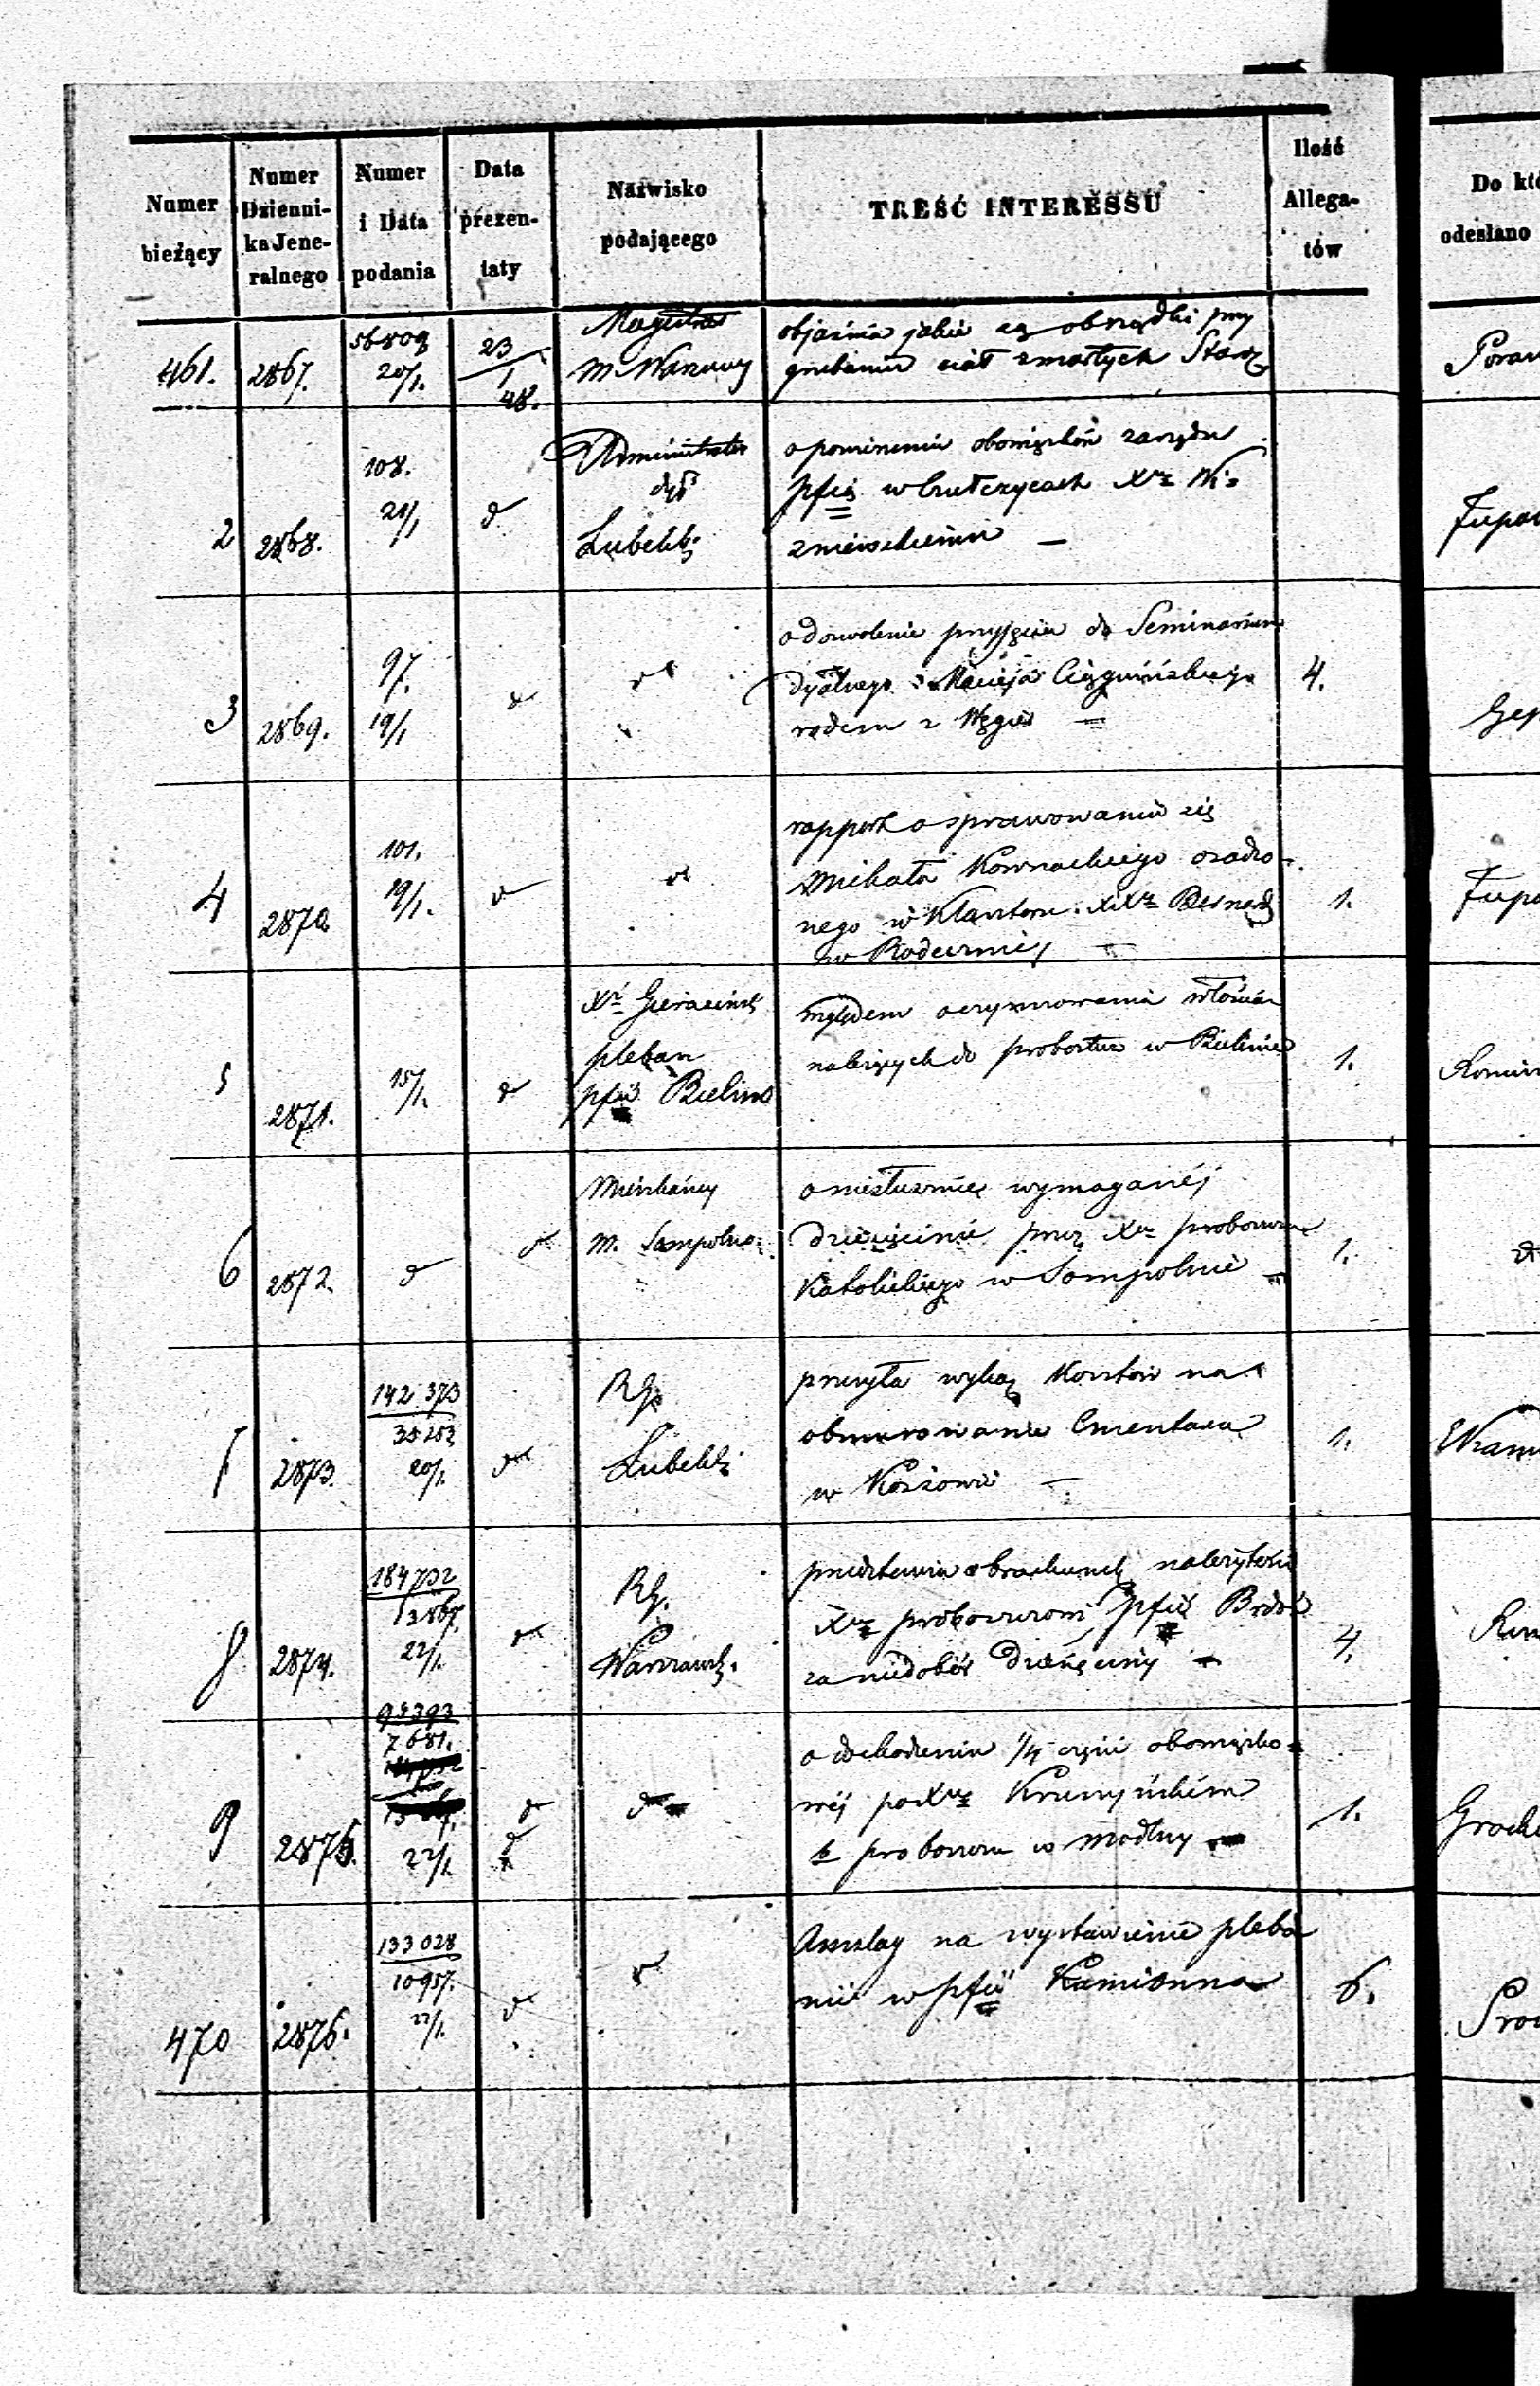 Numer bieżący
Numer Dzienni- ka Jene- ralnego
Numer i Data podania
Data prezen- taty
Nazwisko podającego
TREŚĆ INTERESSU
Ilość Allega- tów
Do któ
odesłano
461. 2867. 56809 20/1. 23/1 48.
Magistrat
m. Warszawy
objaśnia jakie są obrządki przy
grzebaniu ciał zmarłych Starz
2 2868. 108. 21/1 d
Administrator
dyi
Lubelski
o poruczeniu obowiązków zarządu
pfii w Xa Wi-
śniewskiemu —
3 2869. 97. 19/1 d d
o dozwolenie przyjęcia do Seminarium
dyalnego Macieja
rodem z Węgier —
4.
4 2870. 101. 19/1. d d
rapport o sprawowaniu się
Michała Kownackiego osadzo-
nego w Klasztorze XX Bernard
w Radecznicy —
1.
5 2871. 15/1. d
X
pleban
pfii Bielino
względem oczynszowania włościan
należących do probostwa w Bielinie
1.
6 2872. d d
Mieszkańcy
m. Sompolno
o niesłusznie wymaganéj
dziesięcinie przez Xa proboszcza
Katolickiego w Sompolnie —
1.
7 2873. 142373 35253 20/1. d
RG.
Lubelski
przesyła wykaz Kosztów na
obmurowanie Cmentarza
w —
1.
8 2874. 184732 13867. 22/1. d
RG.
Warszawsk.
przedstawia obrachunek należytości
Xa proboszczowi pfii Brdów
za niedobór Dziesięciny —
4.
9 2875. 95393 7681. 22/1. d d
o dochodzeniu 1/4 części obowiązko-
wéj po Xu
b proboszczu w Modlny
1.
470 2876. 133028 10957. 22/1. d d
Anszlag na wystawienie pleba
nii w pfii Kamionna
6.